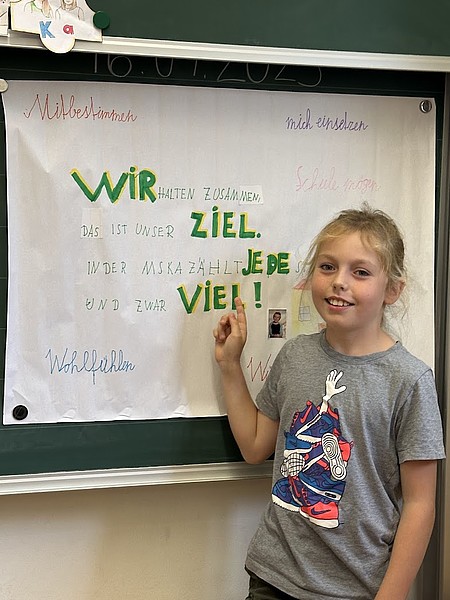 Ka
16.01.2025
Mitbestimmen
mich einsetzen
Schule mögen
WIR HALTEN ZUSAMMEN,
DAS IST UNSER ZIEL.
IN DER MSKA ZÄHLT JEDE
UND ZWAR VIEL!
Wohlfühlen